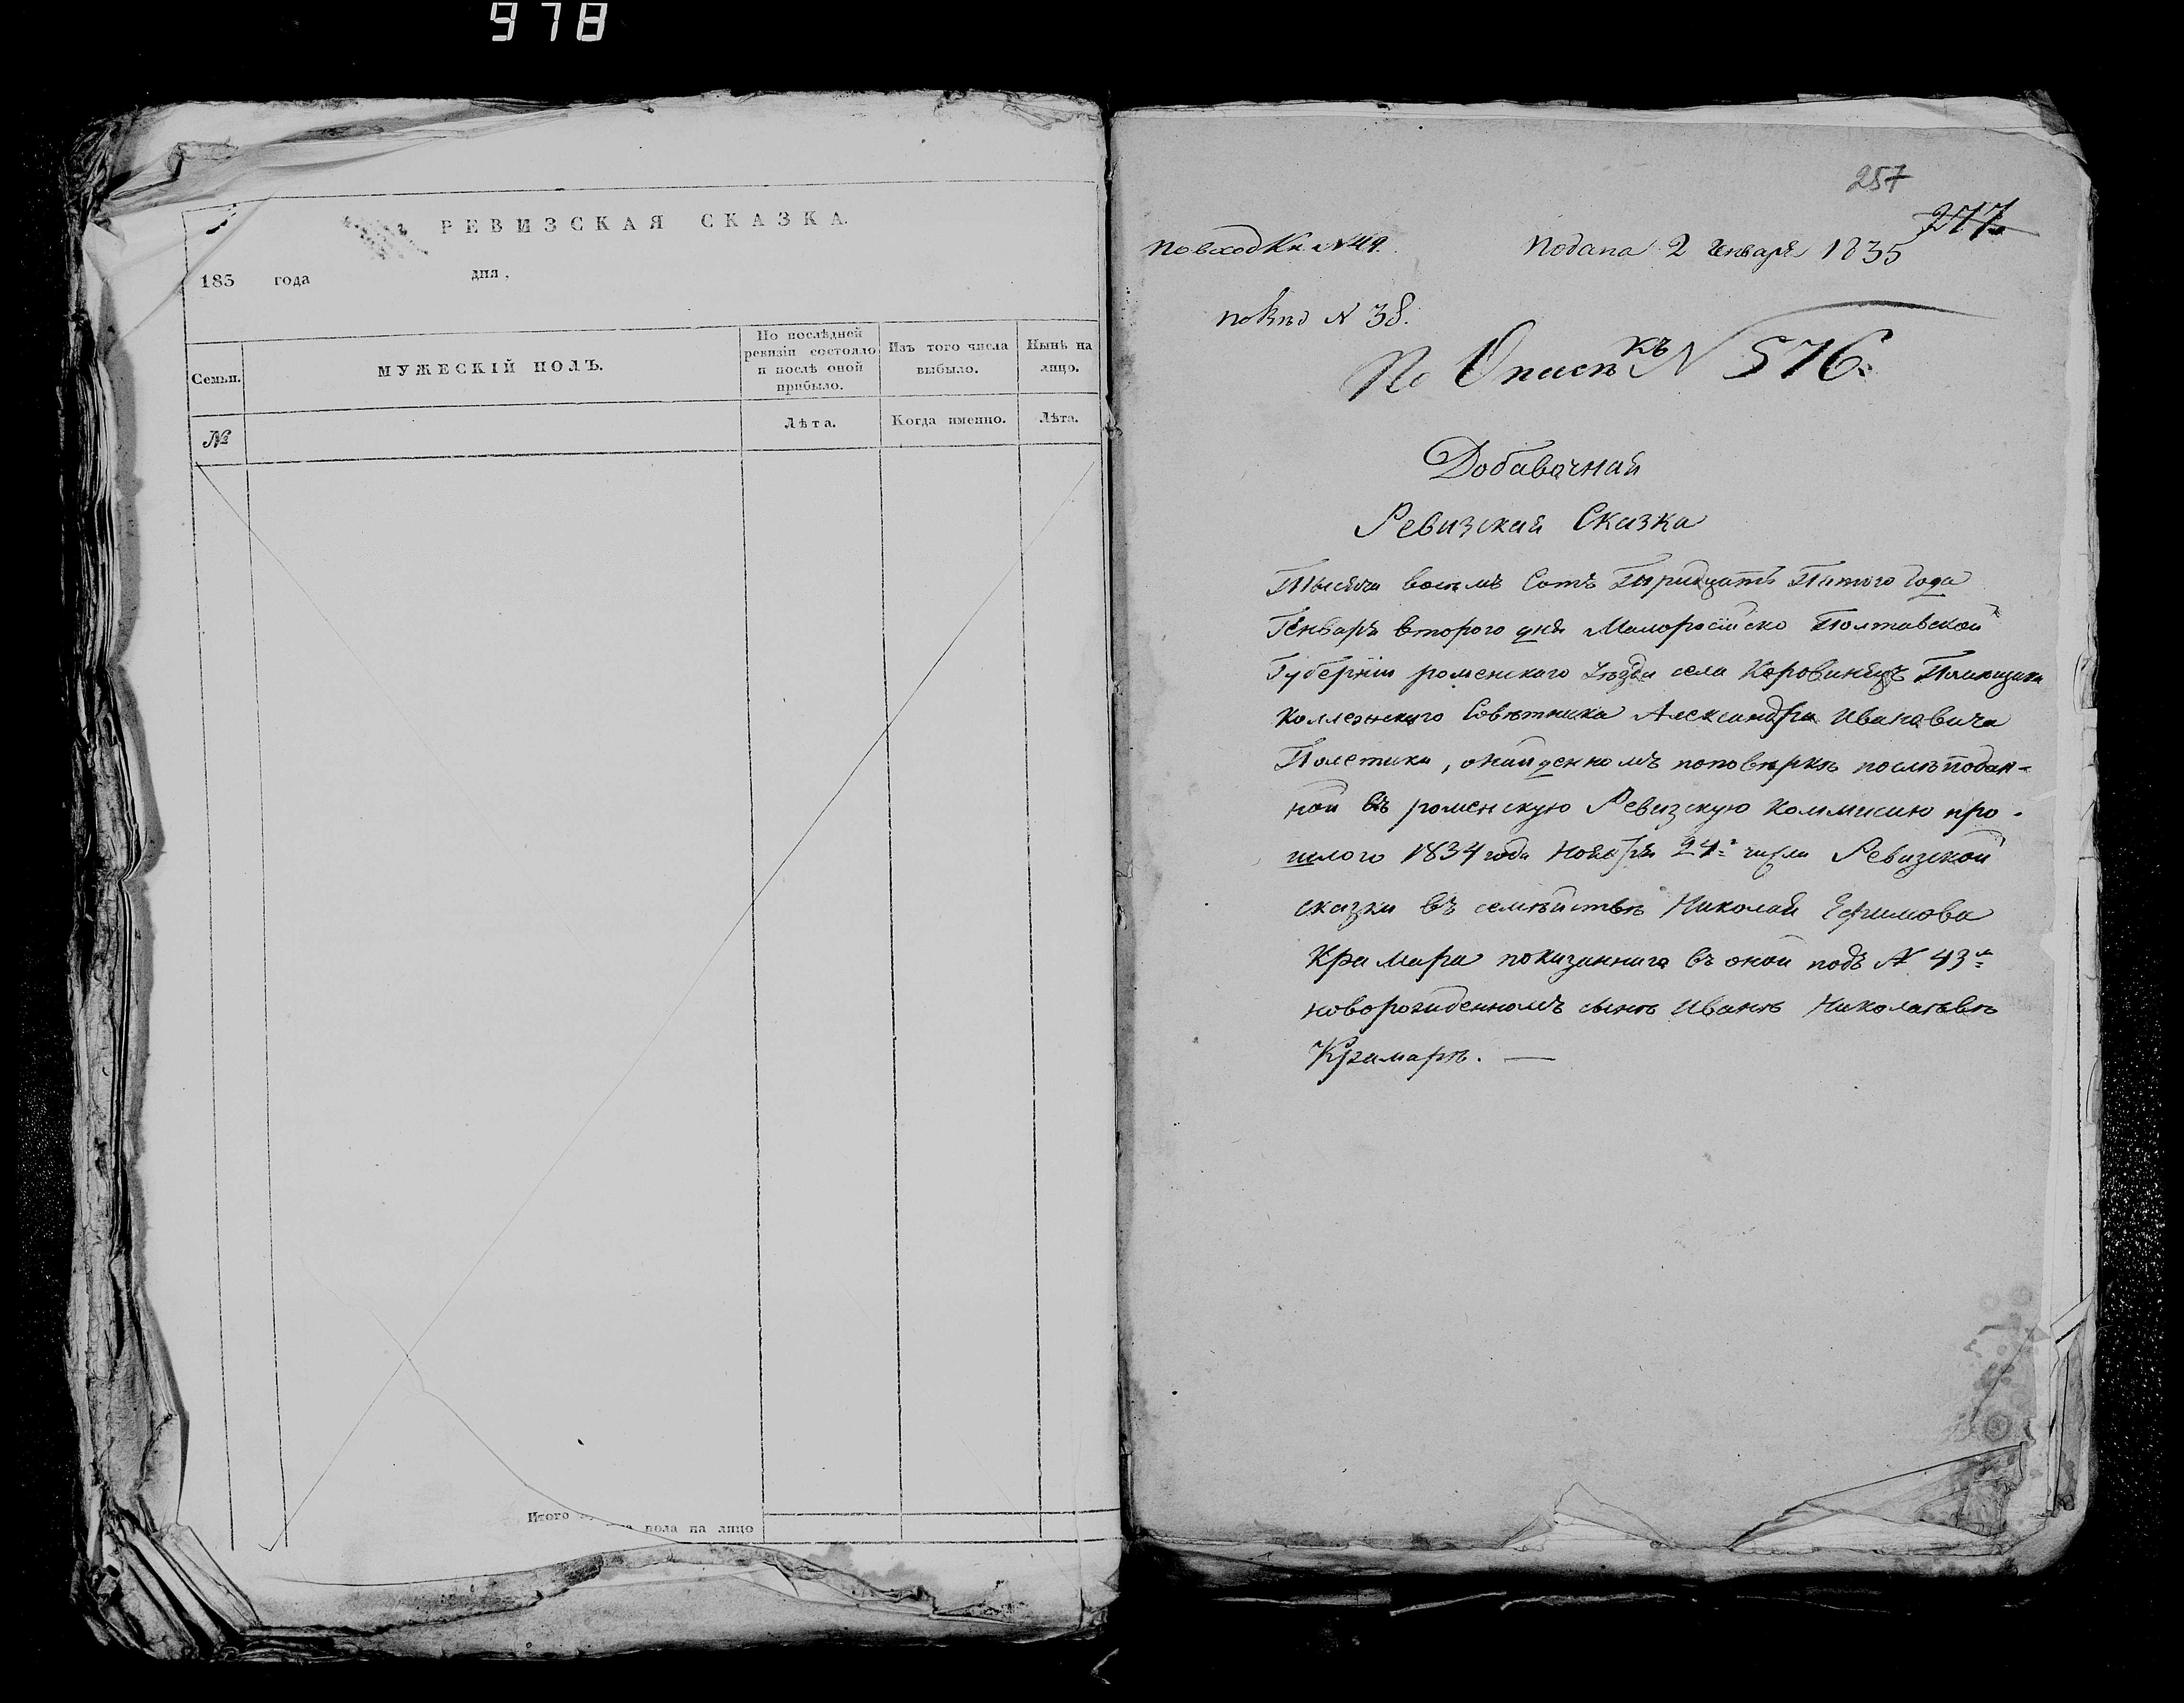 978
РЕВИЗСКАЯ СКАЗКА.
183 года дня,
Семьи.
МУЖЕСКІЙ ПОЛЪ.
По послѣдней ревизіи состояло и послѣ оной прибыло.
Изъ того числа выбыло.
Нынѣ на лицо.
№
Лѣта.
Когда именно.
Лѣта.
Итого пола на лицо
257
277
По вход Кн N 49.
Подана 2 Генваря 1835
N 38.
По Описи къ N 576.
Добавочная
Ревизская Сказка
Тысяча восемь Сотъ Тридцать Пятого года
Генваря второго дня Малоросійско Полтавской
Губерніи роменскаго уѣзда села Коровинецъ Помещика
Коллежскаго Совѣтника Александра Ивановича
Полетики, онайденномъ поповѣркѣ послѣ подан-
ной въ роменскую Ревизскую Коммисию про-
шлого 1834 года Ноября 24: числа Ревизской
сказки въ семѣйствѣ Николая Ефимова
Крамара показаннаго въ оной подъ N 43
новорожденномъ сынѣ Иванѣ Николаевѣ
Крамарѣ. —